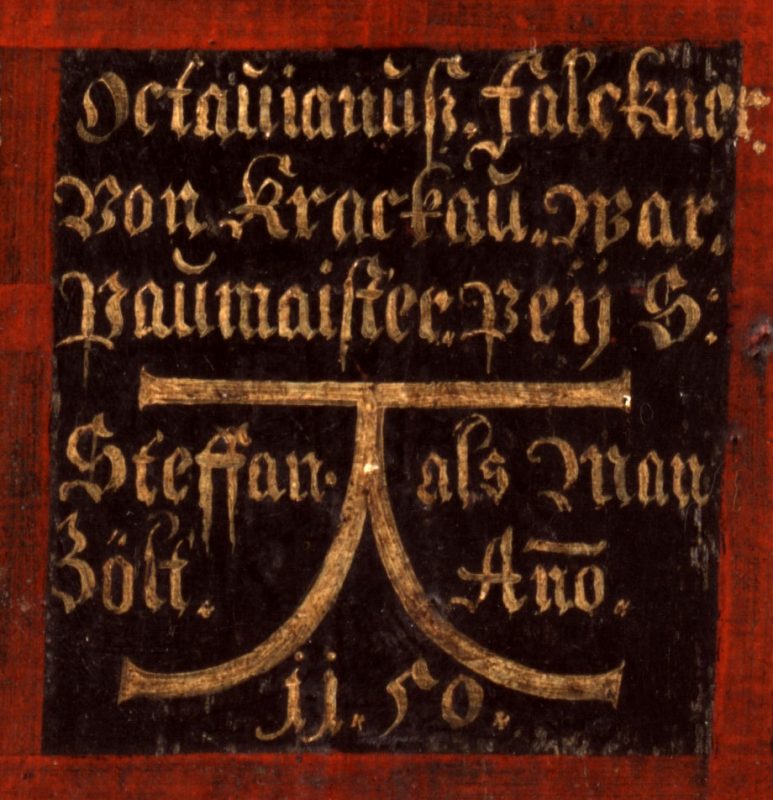 Octaŭianŭß. Falckner.
Von Krackaŭ. War.
Paŭmaister. Peij S:
Steffan. als Man
Zölt. Año.
jj.50.